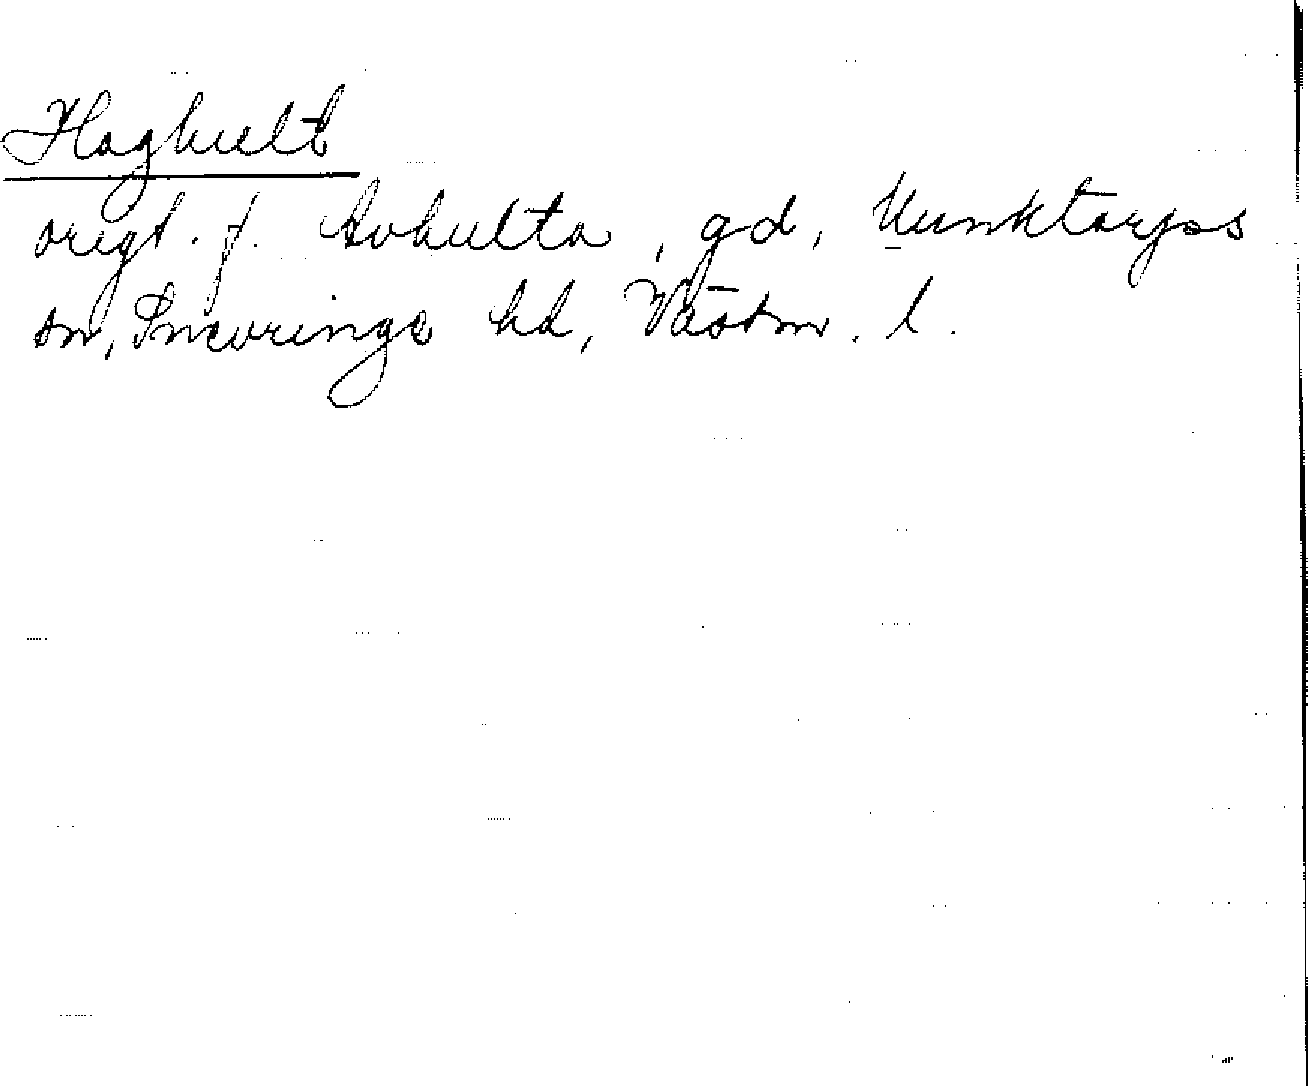 Haghult
avgt. f. Avhulta, gd, Munktorps
sn, Snevringe hd, Västm. l.